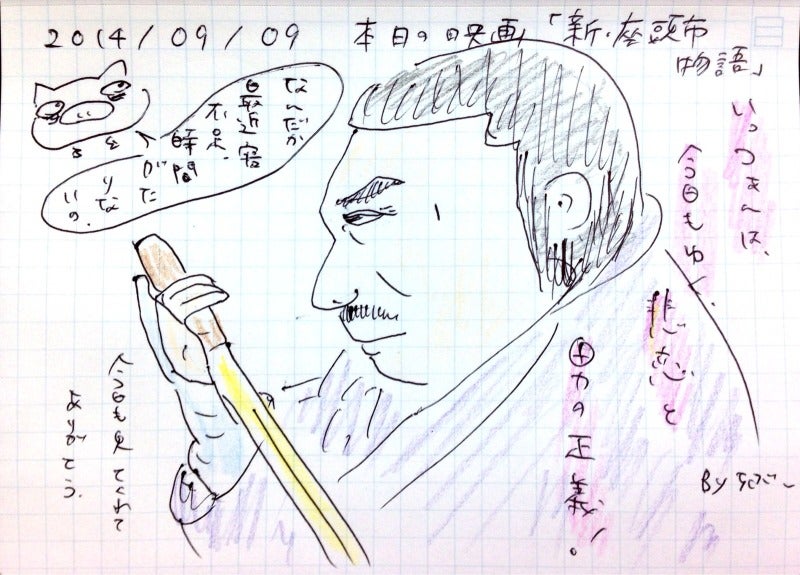 2014/09/09 本日の映画「新・座頭市
物語」
いっつぁんは、
今日もゆく、
悲恋と
力の正義!
なんだか
最近寝
不足.
時間
がた
りな
いの.
今日も見てくれて
ありがとう.
By